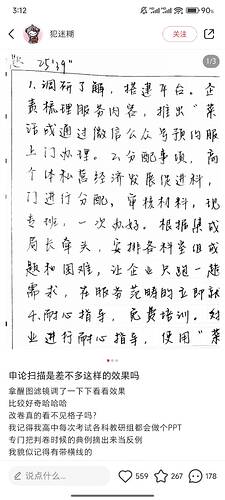 3:12
90%
犯迷糊
关注
1/3
25'39"
1.调研了解,搭建平台。企
责梳理服务内容,推出“菜
话或通过微信公众号预约服
上门办理。2.分配事项,高
个体私营经济发展促进科,
门进行分配,审核材料,现
专班,一次办好。根据集成
局长牵头,安排各科室组成
题和困难,让企业只跑一趟
需求,在服务范畴的立即就
4.耐心指导,免费培训。对
业进行耐心指导,使用“菜
申论扫描是差不多这样的效果吗
拿醒图滤镜调了一下下看看效果
比较好奇哈哈哈
改卷真的看不见格子吗?
我记得我高中每次考试各科教研组都会做个PPT
专门把判卷时候的典例摘出来当反例
我貌似记得有带横线的
说点什么...
559
267
178